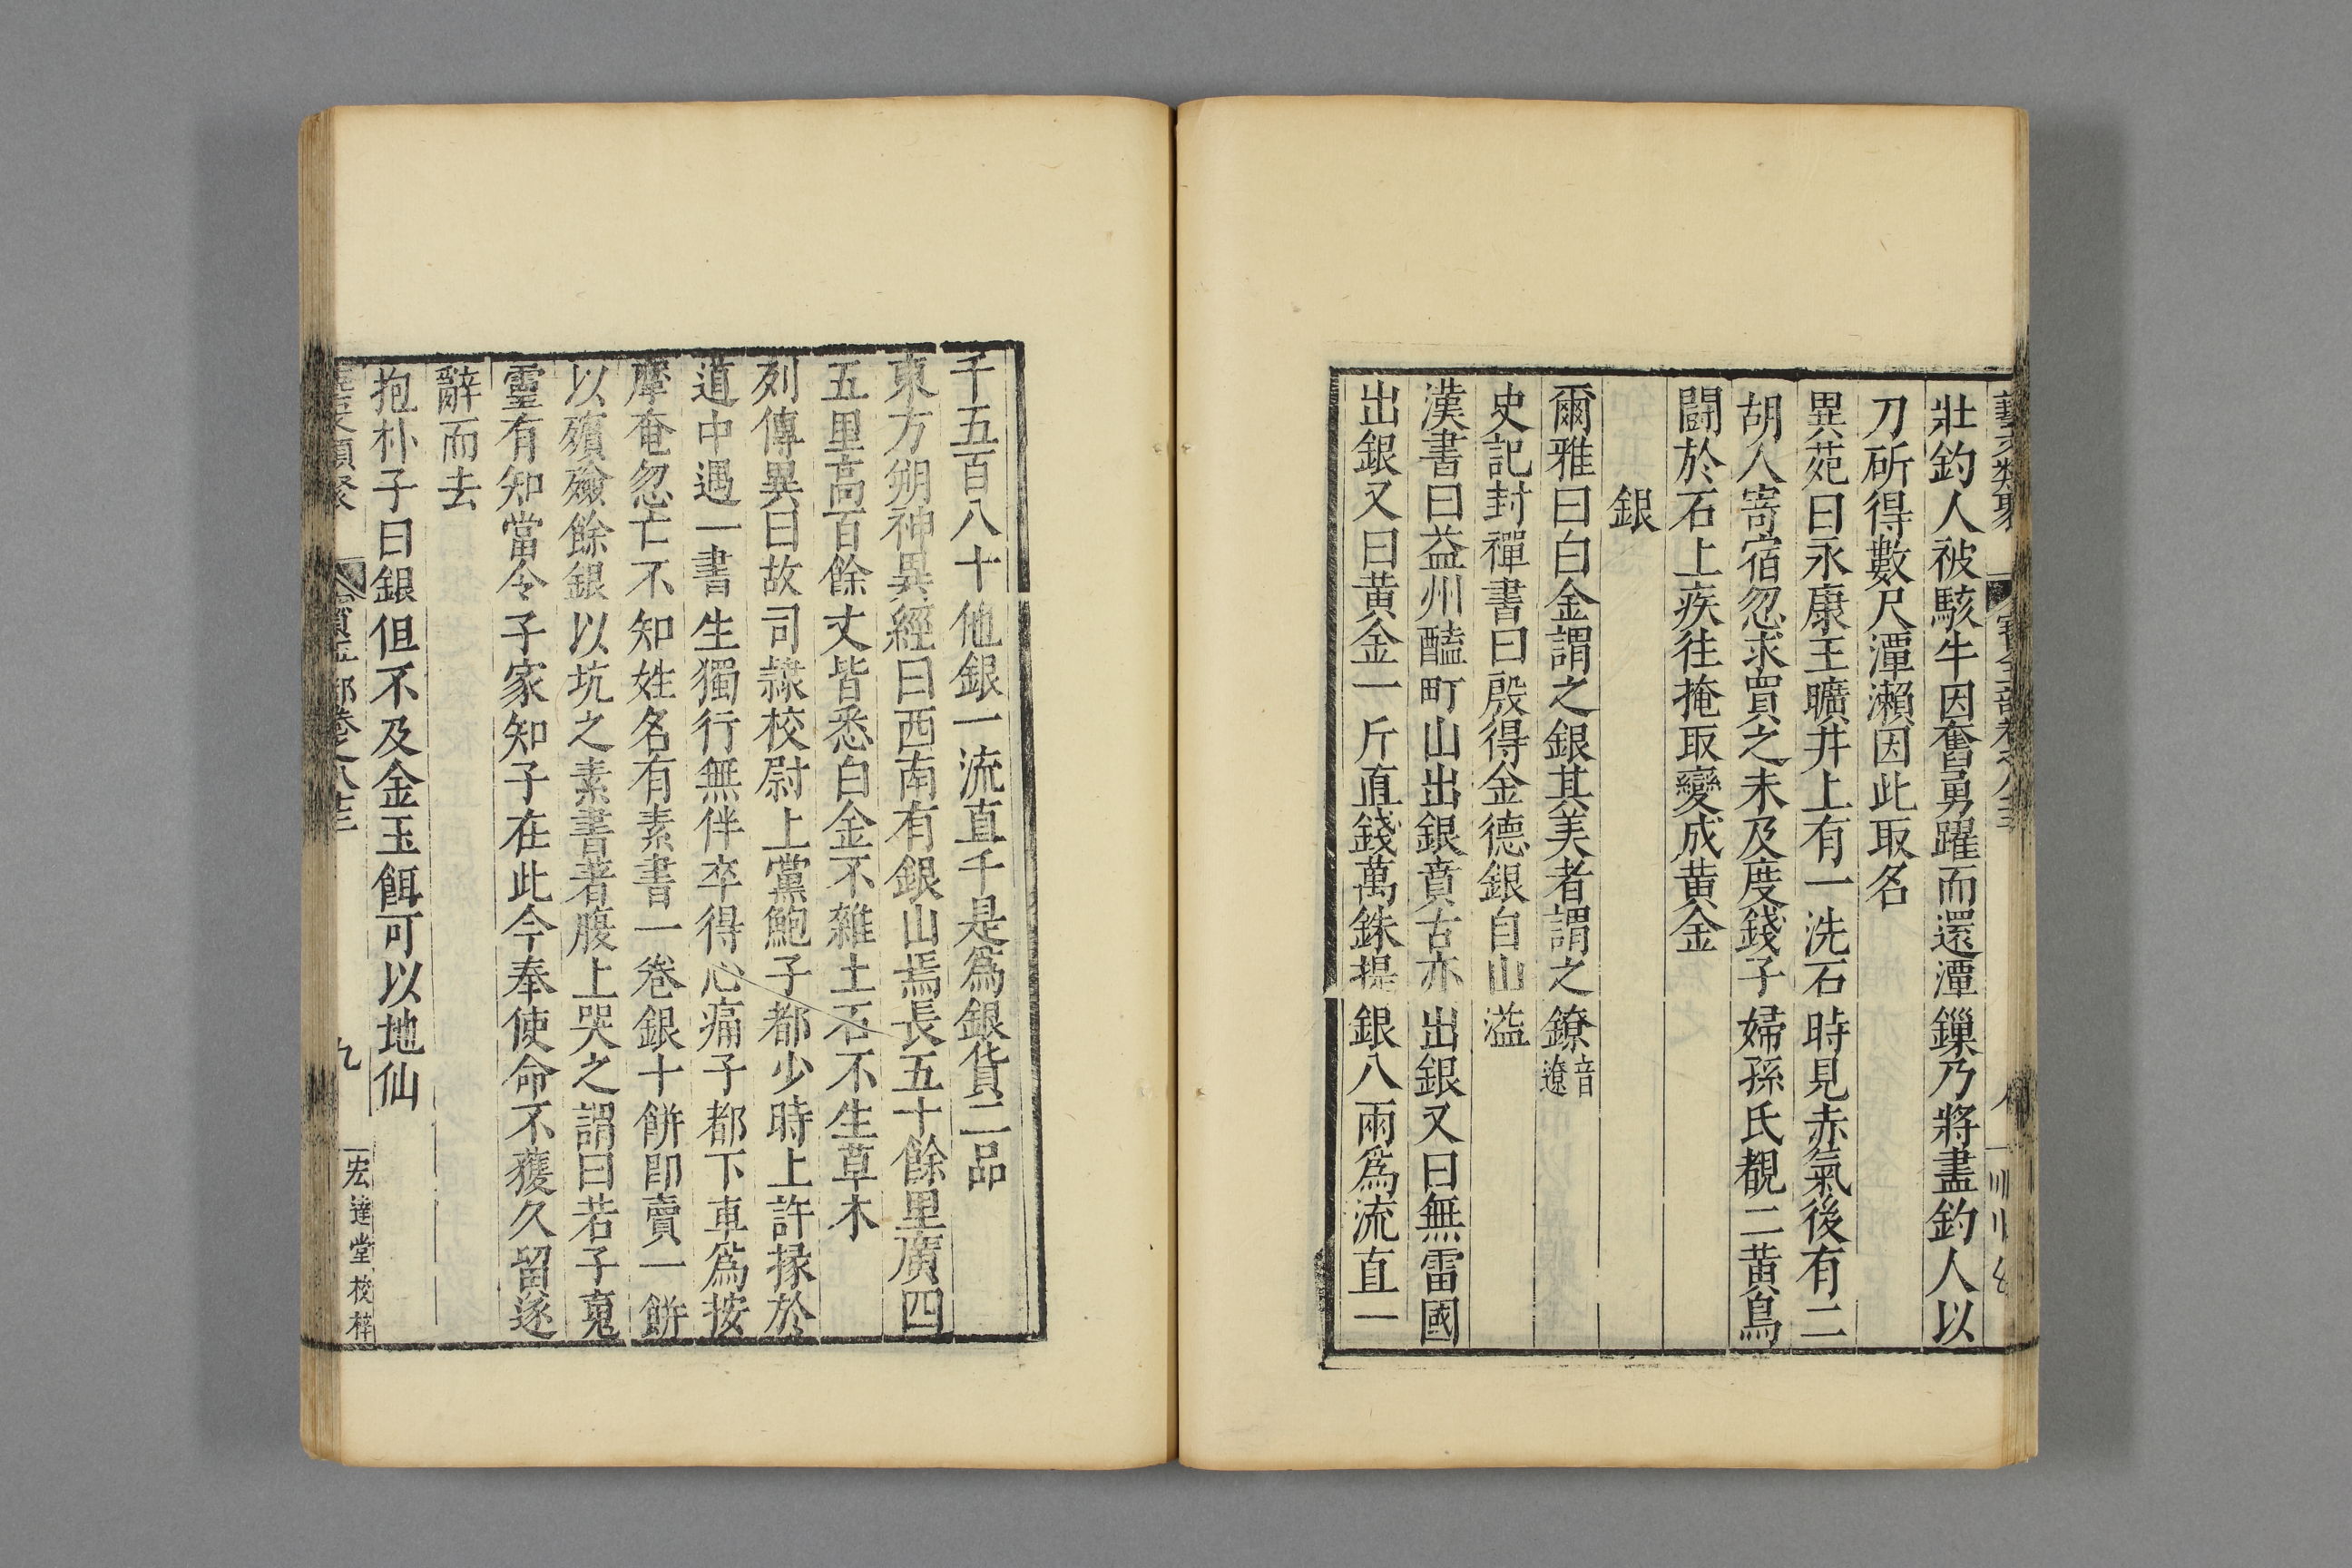 壯釣人被駭牛因奮勇躍而還潭鏁乃將盡釣人以
刀斫得數尺潭瀨因此取名
異苑曰永康王曠井上有一洗石時見赤氣後有二
胡人寄宿忽求買之未及度錢子婦孫氏覩二黄鳥
鬪於石上疾往掩取變成黄金
銀
爾雅曰白金謂之銀其美者謂之鐐音遼
史記封禪書曰殷得金德銀自山溢
漢書曰益州醯町山出銀賁古亦出銀又曰無雷國
出銀又曰黄金一斤直錢萬銖提銀八兩爲流直一
千五百八十他銀一流直千是爲銀貨二品
東方朔神異經曰西南有銀山焉長五十餘里廣四
五里高百餘丈皆悉白金不雜土石不生草木
列傳異曰故司隷校尉上黨鮑子都少時上許掾於
道中遇一書生獨行無伴卒得心痛子都下車爲按
摩奄忽亡不知姓名有素書一卷銀十餅卽賣一餅
以殯殮餘銀以坑之素書著腹上哭之謂曰若子䰟
靈有知當令子家知子在此今奉使命不獲久留遂
辭而去
抱朴子曰銀但不及金玉餌可以地仙
九
宏達堂校梓